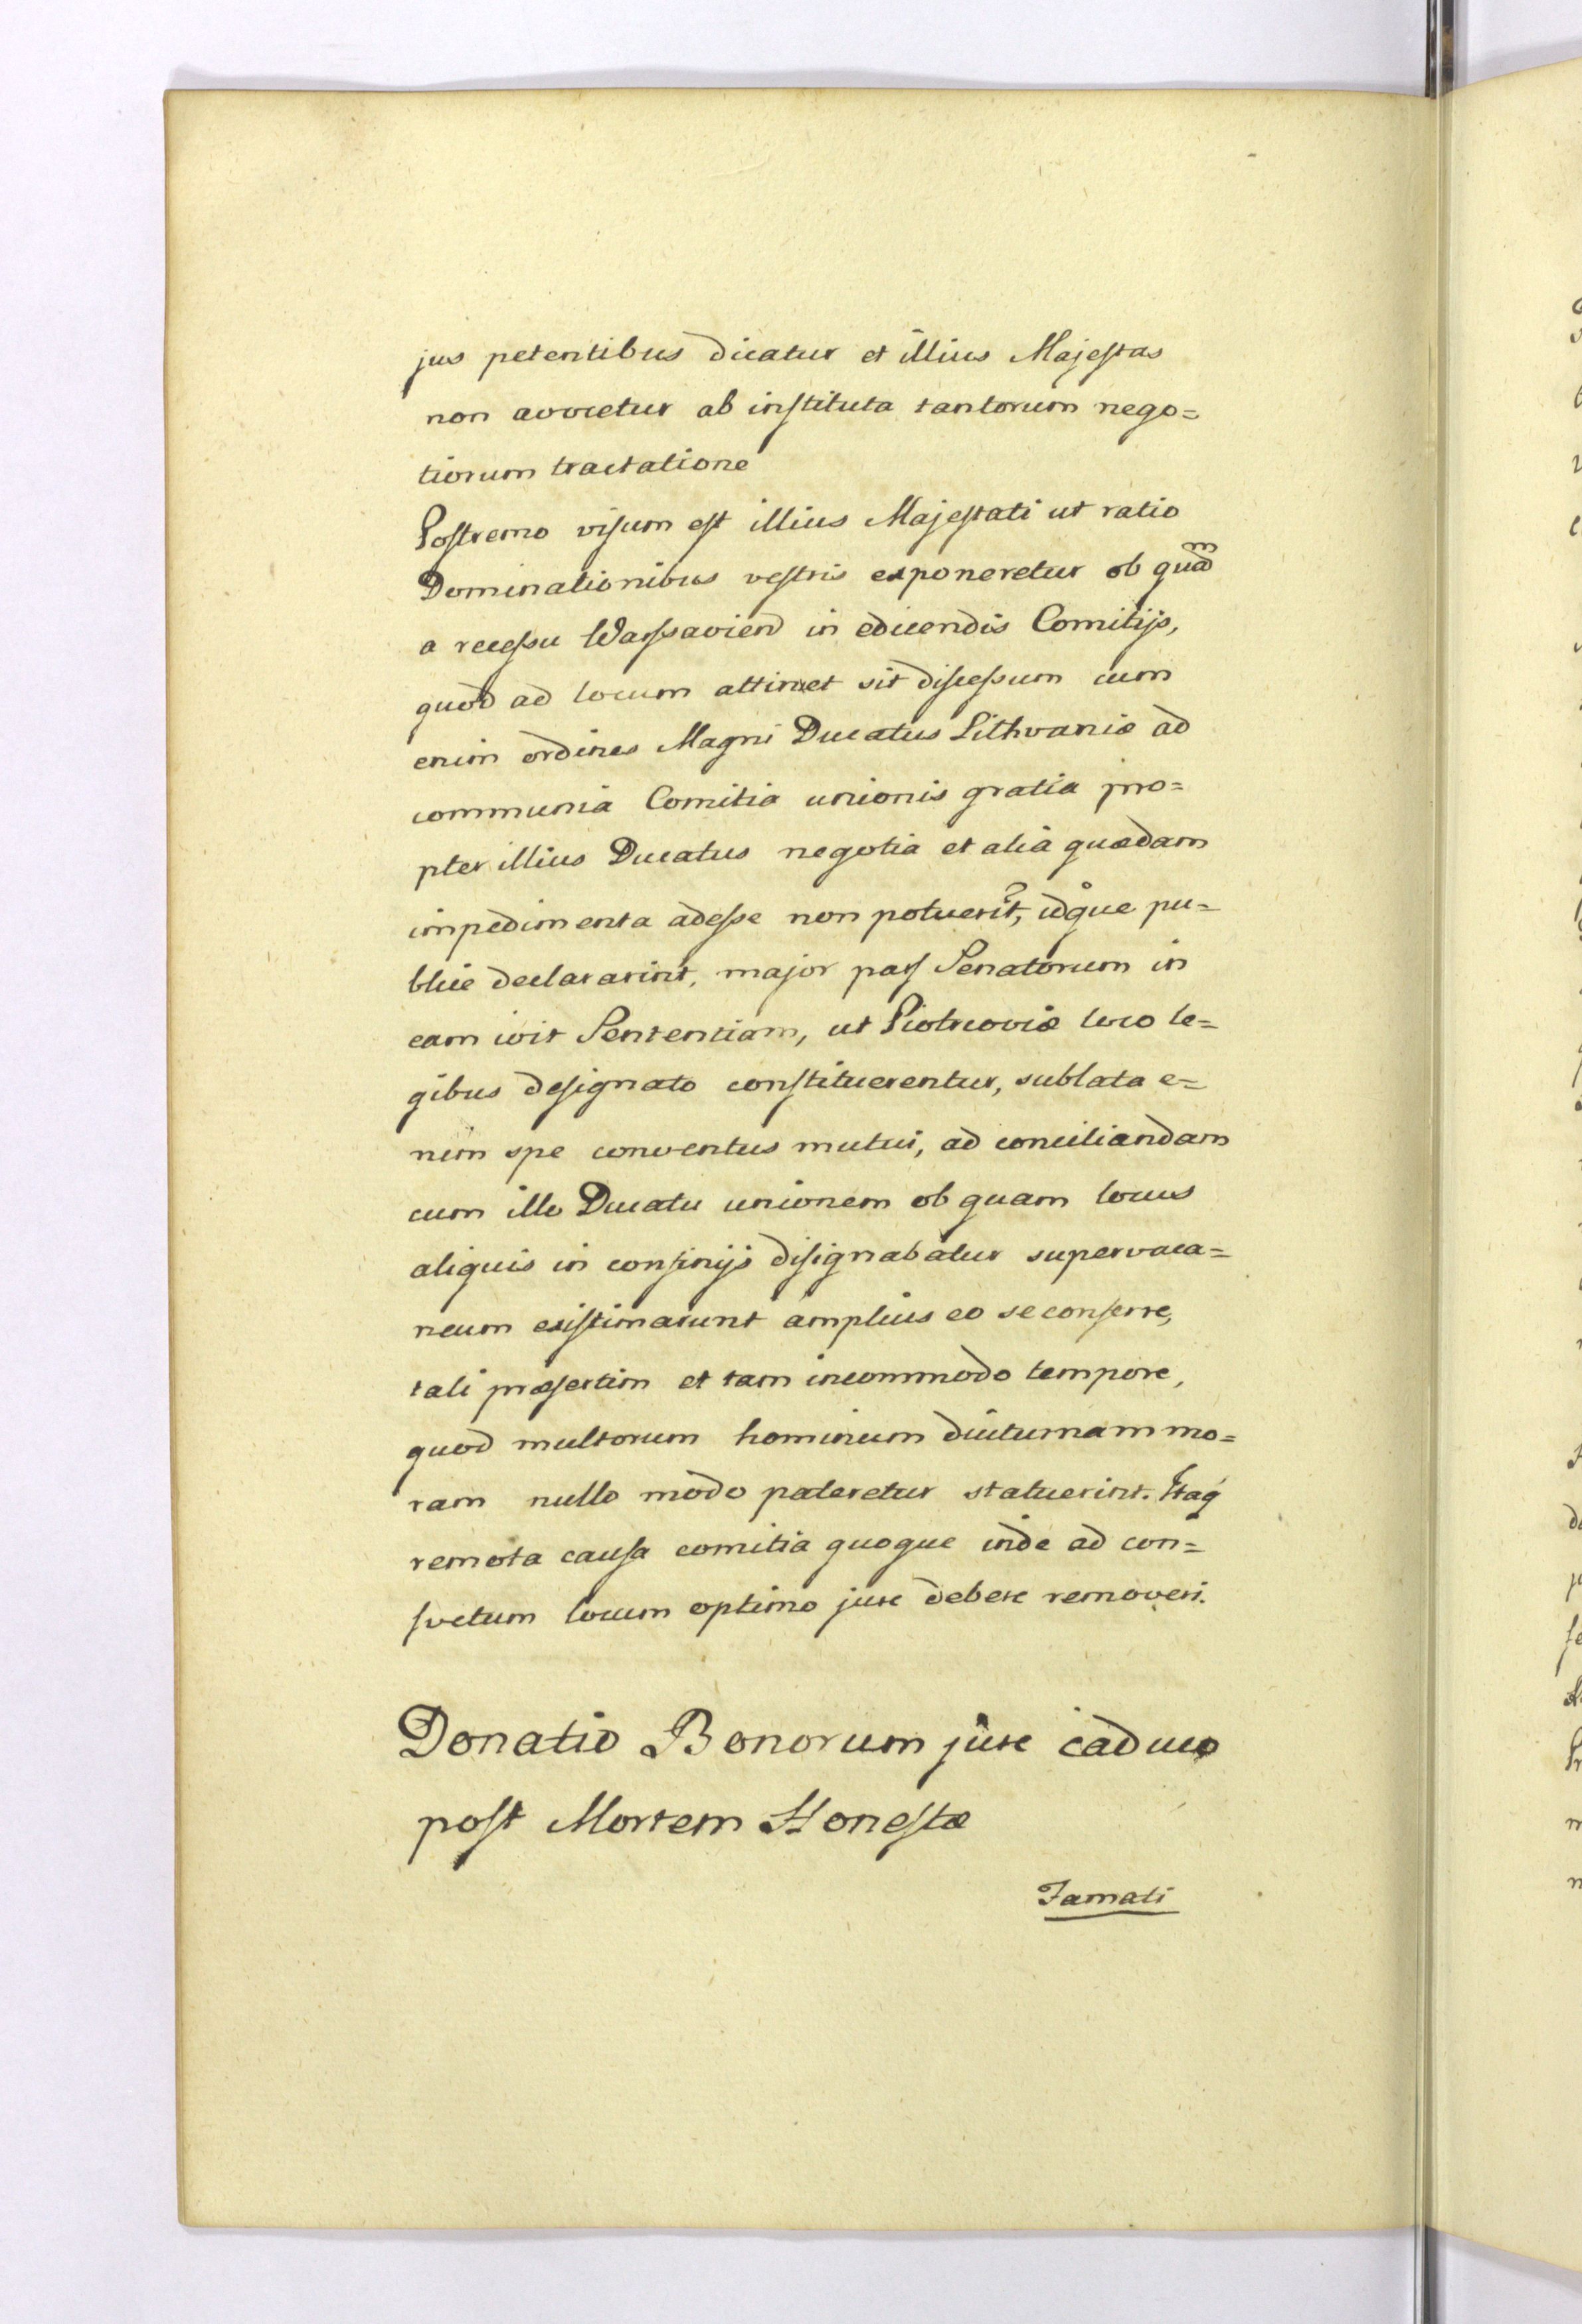 jus petentibus dicatur et illius Majestas
non avocetur ab instituta tantorum nego=
tiorum tractatione
Postremo visum est illius Majestati ut ratio
Dominationibus vestris exponeretur ob quam
a recessu Warssavien in edicendis Comitijs,
quod ad locum attinet sit discessum cum
enim ordines Magni Ducatus Lithvaniæ ad
communia Comitia unionis gratia pro=
pter illius Ducatus negotia et alia quædam
impedimenta adesse non potuerit, idque pu=
blice declararint, major pars Senatorum in
eam ivit Sententiam, ut Piotrcoviæ loco le=
gibus designato constituerentur, sublata e=
nim spe conventus mutui, ad conciliandam
cum illo Ducatu unionem ob quam locus
aliquis in confinijs disignabatur supervaca=
neum existimarunt amplius eo se conferre,
tali præsertim et tam incommodo tempore,
quod multorum hominum diuturnam mo=
ram nullo modo pateretur statuerint. Itaq
remota causa comitia quoque inde ad con=
svetum locum optimo jure debere removeri.
Donatio Bonorum jure caduco
post Mortem Honestæ
Famati